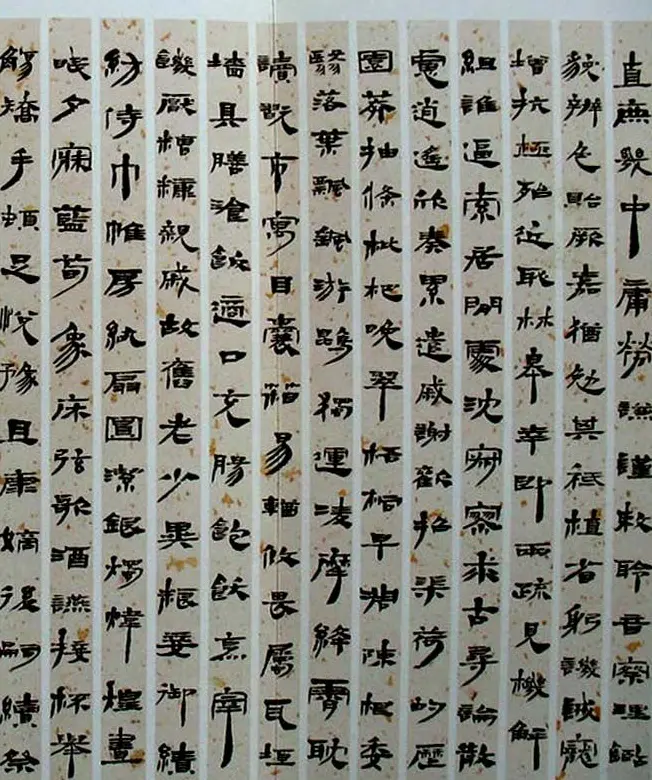 直庶幾中庸勞謙謹敕聆音察理鑑
貌辨色貽厥嘉猶勉其祗植省躬譏誡寵
增抗極殆近恥林皋幸即兩疏見機解
組誰逼索居閒處沈寂寥求古尋論散
慮逍遙欣奏累遣戚謝歡招渠荷的歷
園莽抽條枇杷晚翠梧桐早凋陳根委
翳落葉飄颻游鵾獨運凌摩絳霄耽
讀翫市寓目囊箱易輶攸畏屬耳垣
墻具膳飡飯適口充腸飽飫烹宰
饑厭糟糠親戚故舊老少異粮妾御績
紡侍巾帷房紈扇圓潔銀燭煒煌晝
眠夕寐藍筍象床弦歌酒讌接杯舉
觴矯手頓足悅豫且康嫡後嗣續祭